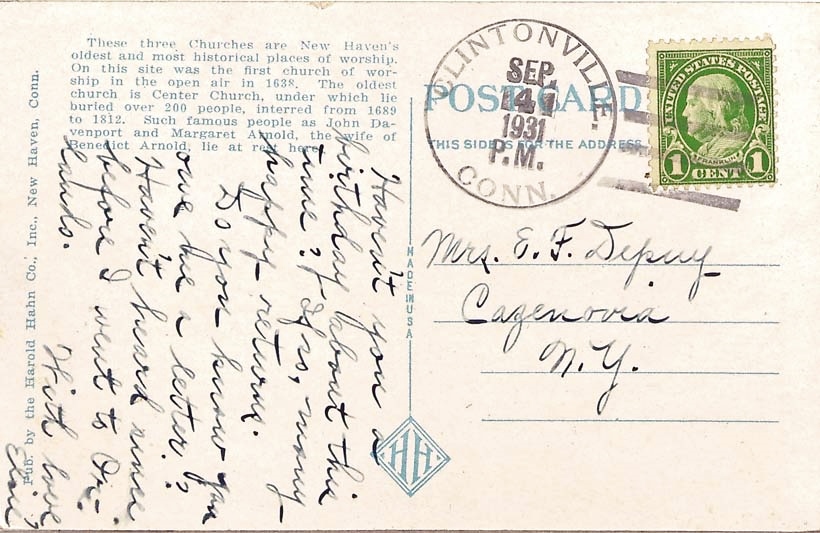 These three Churches are New Haven's
oldest and most historical places of worship.
On this site was the first church of wor-
ship in the open air in 1638. The oldest
church is Center Church, under which lie
buried over 200 people, interred from 1689
to 1812. Such famous people as John Da-
venport and Margaret Arnold, the wife of
Benedict Arnold, lie at rest here.
Pub. by the Harold Hahn Co., Inc., New Haven, Conn.
Haven't you a
birthday about this
time? If so, many
happy returns.
Do you know you
owe me a letter?
Haven't heard since
before I went to Or-
lando.
With love,
Elsie
MADE IN USA
HH
POST CARD
THIS SIDE IS FOR THE ADDRESS
CLINTONVILLE
SEP
4
1931
P.M.
CONN.
UNITED STATES POSTAGE
FRANKLIN
1 CENT 1
Mrs. E. F. Depuy
Cazenovia
N.Y.